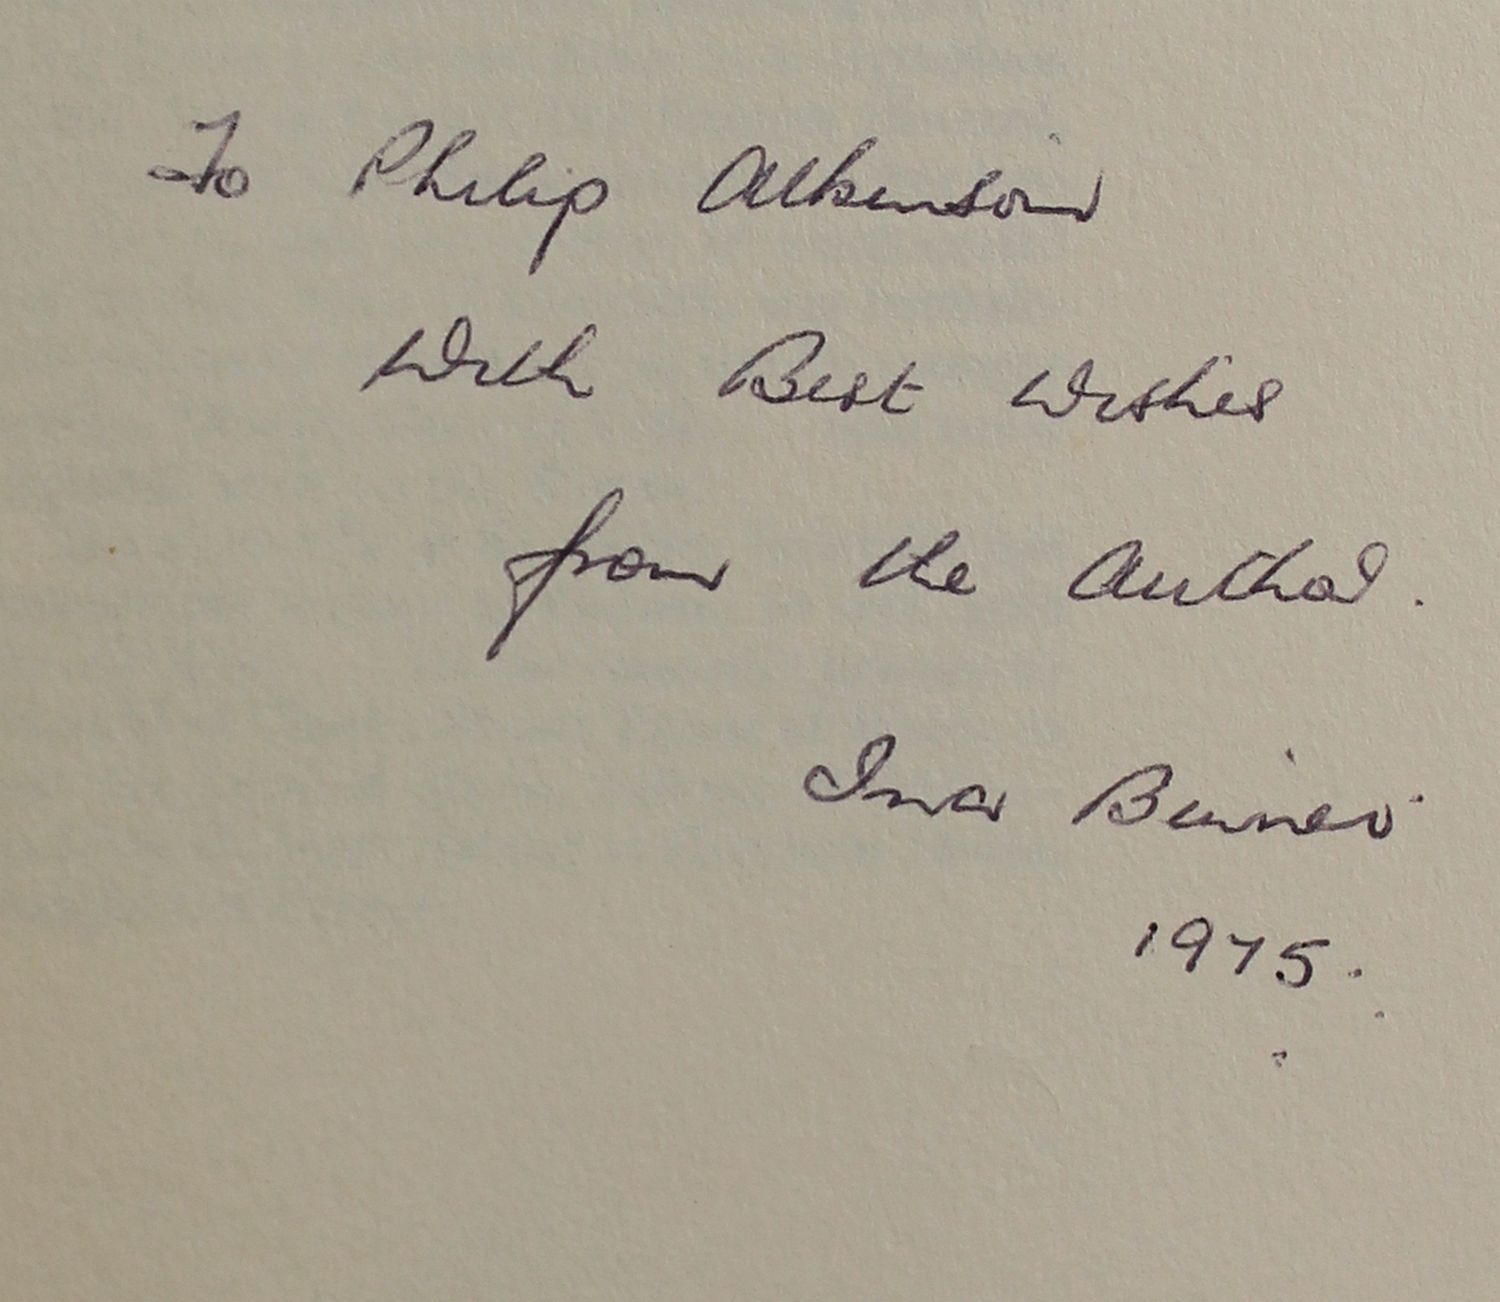 To Philip Atkinson
With Best Wishes
from the Author.
Ina
1975.